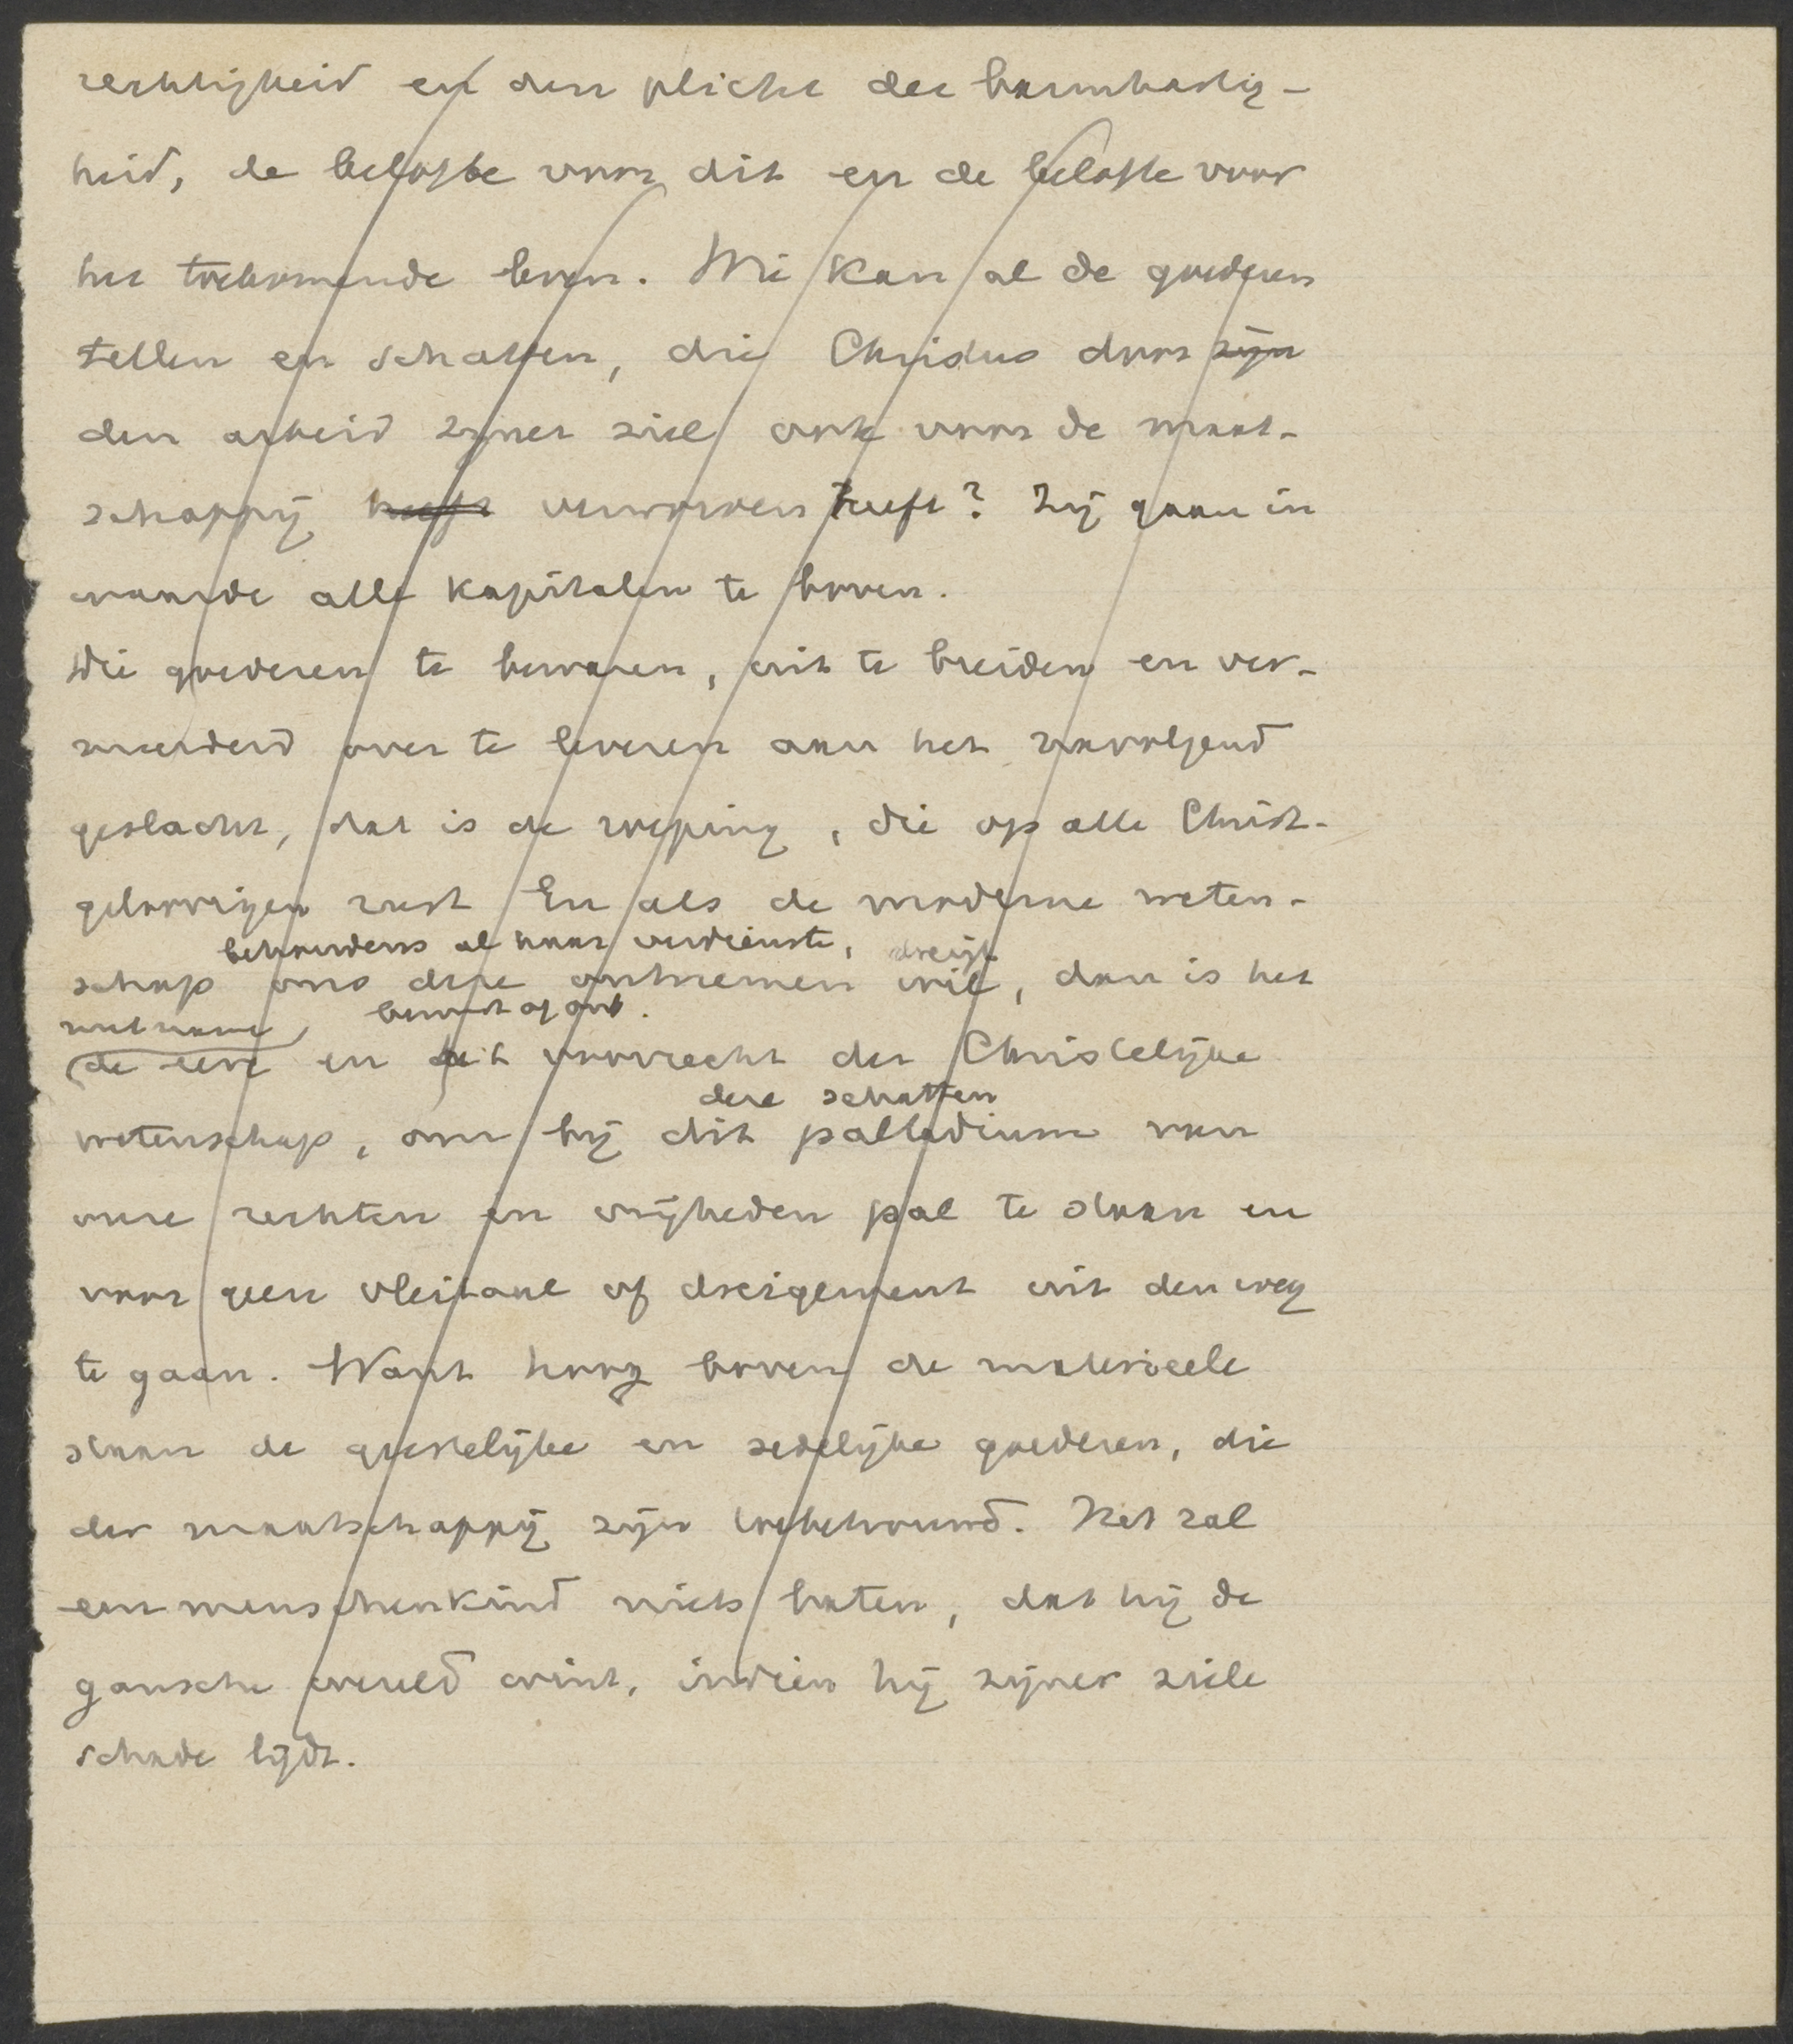 rechtigheid en den plicht der barmhartig-
heid, de belofte voor dit en de belofte voor
het toekomende leven. Wie kan al de goederen
tellen en schatten, die Christus door zijn
den arbeid zijner ziel ook voor de maat-
schappij heeft verworven heeft? Zij gaan in
waarde alle kapitalen te boven.
Die goederen te bewaren, uit te breiden en ver-
meerderd over te leveren aan het navolgend
geslacht, dat is de roeping, die op alle Christ-
geloovigen rust En als de moderne weten-
behoudens al haar verdienste, dreigt
schap ons deze ontnemen wil, dan is het
met name bewust of onb.
de eere en het voorrecht der Christelijke
deze schatten
wetenschap, om bij dit palladium van
onze rechten en vrijheden pal te staan en
voor geen vleitaal of dreigement uit den weg
te gaan. Want hoog boven de materieele
staan de geestelijke en zedelijke goederen, die
der maatschappij zijn toebetrouwd. Het zal
een menschenkind niets baten, dat hij de
gansche wereld wint, indien hij zijner ziele
schade lijdt.